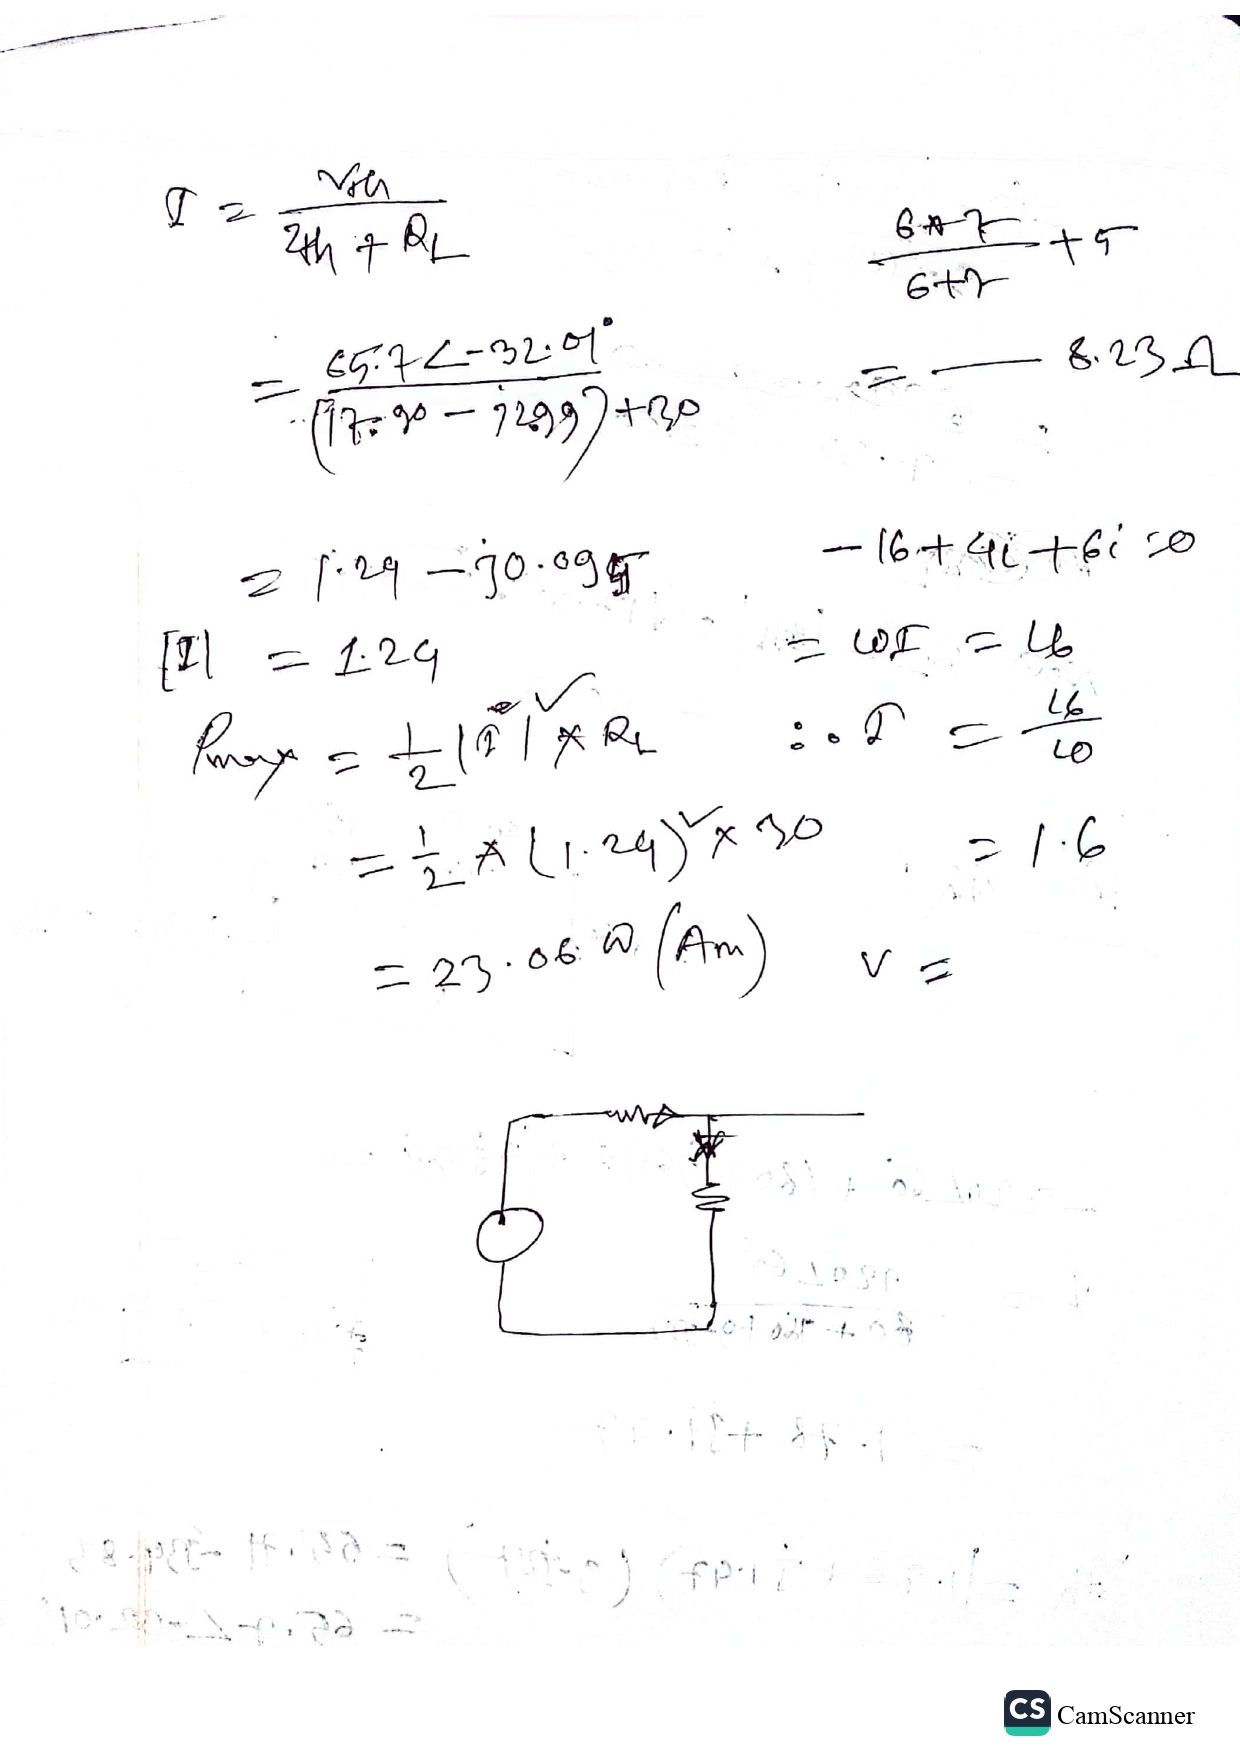 I = Vth / Zth + RL
= 65.7∠-32.01° / (17.90 - j2.99) + 30
= 1.24 - j0.095
|I| = 1.24
Pmax = 1/2 |I|² × RL
= 1/2 × (1.24)² × 30
= 23.06 W (Am)
6*7 / 6+7 + 5
= — 8.23 Ω
-16 + 4i + 6i = 0
= 10I = 16
∴ I = 16/10
= 1.6
V =
CS CamScanner